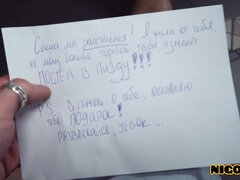 Саша, мы расстаёмся! Я ушла от тебя,
не могу больше терпеть твои измены.
ПОШЁЛ В ПИЗДУ!!!
P.S. В память о себе, оставляю
тебе ПОДАРОК!
РАЗВЛЕКАЙСЯ, УЕБОК...
NICO